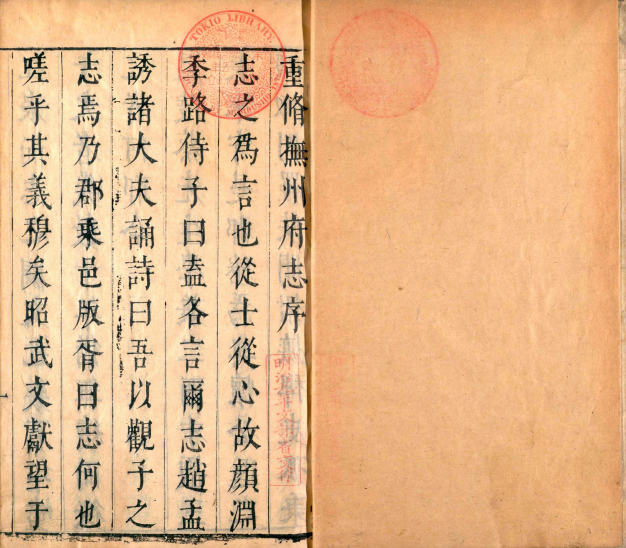 重脩撫州府志序
志之為言也從士從心故顏淵
季路侍子曰盍各言爾志趙孟
誘諸大夫誦詩曰吾以觀子之
志焉乃郡乘邑版胥曰志何也
嗟乎其義穆矣昭武文獻望于
TOKIO LIBRARY